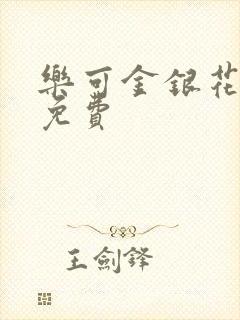 樂可金銀花
免費
王劍鋒